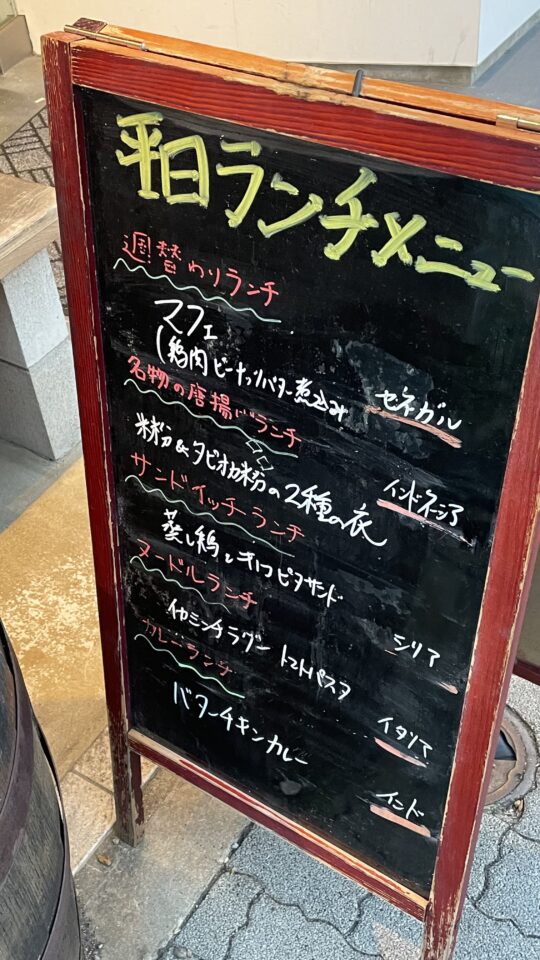 平日ランチメニュー
週替わりランチ
マフェ
(鶏肉ピーナッツバター煮込み
セネガル
名物の唐揚げランチ
米粉&タピオカ粉の2種の衣
インドネシア
サンドイッチランチ
蒸し鶏とキャロピタサンド
シリア
ヌードルランチ
イカミンチラグー トマトパスタ
イタリア
カレーランチ
バターチキンカレー
インド